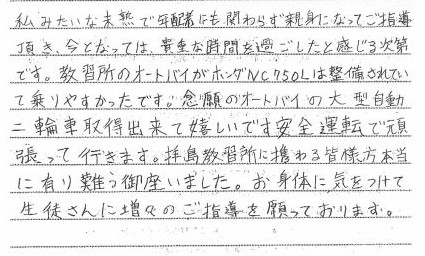 私みたいな未熟で年配者にも関わらず親身になってご指導
頂き、今となっては、貴重な時間を過ごしたと感じる次第
です。教習所のオートバイがホンダNC750Lは整備されてい
て乗りやすかったです。念願のオートバイの大型自動
二輪車取得出来て嬉しいです安全運転で頑
張って行きます。拝島教習所に携わる皆様方本当
に有り難う御座いました。お身体に気をつけて
生徒さんに増々のご指導を願っております。